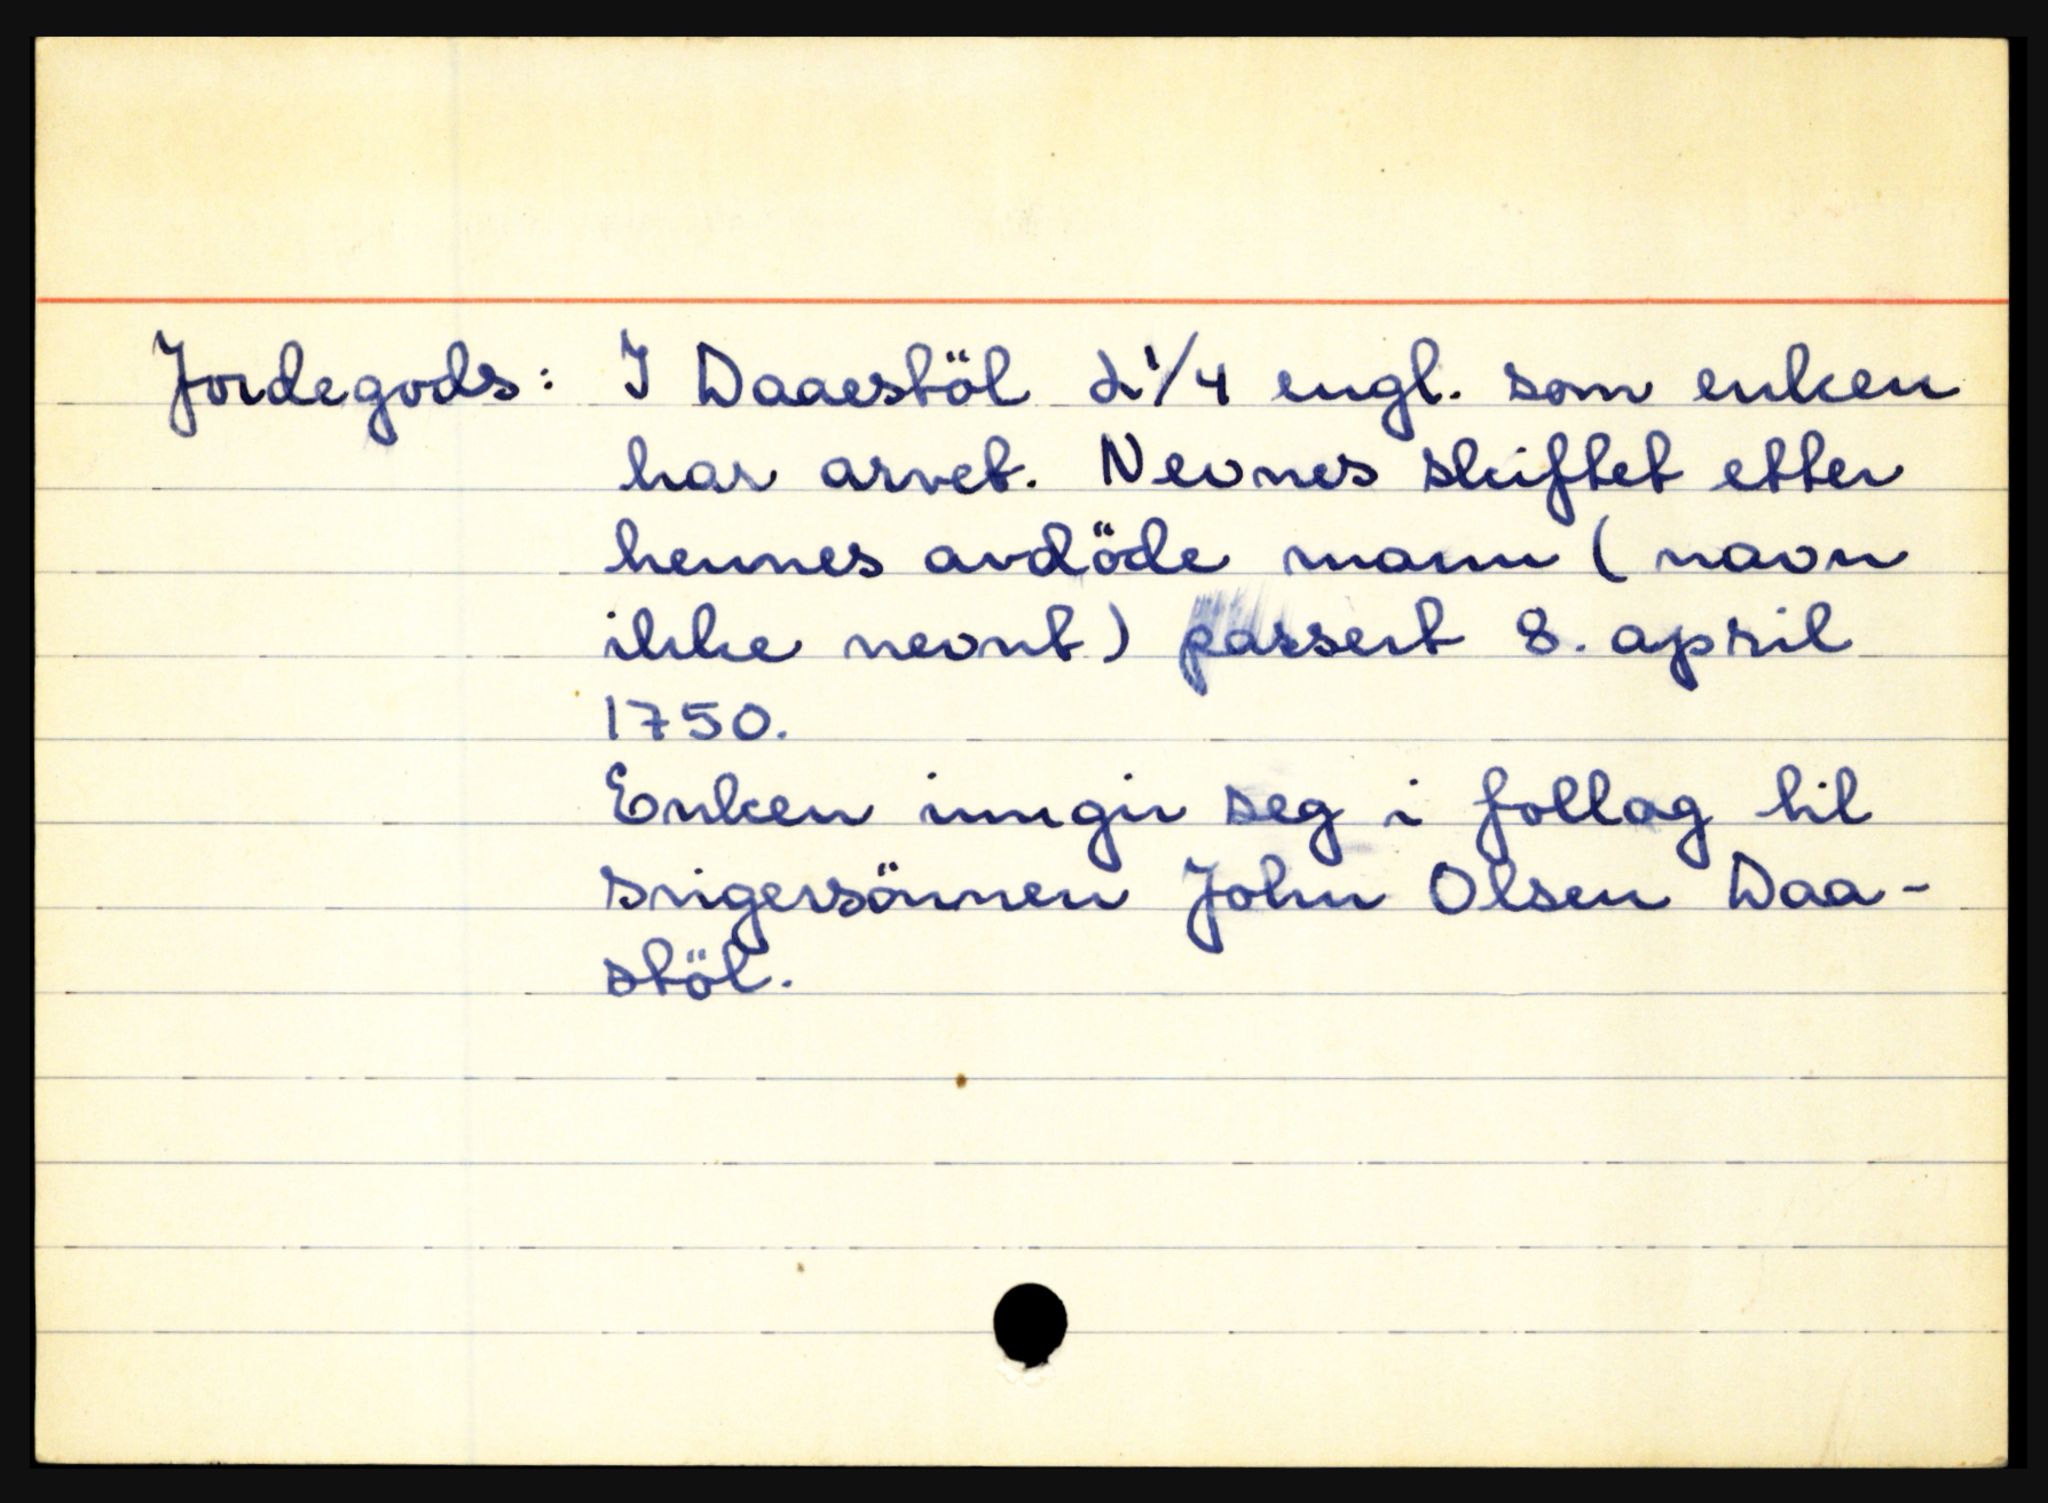 Jordegods: I Daaestöl 2 1/4 engl. som enken
har arvet. Nevnes skiftet etter
hennes avdöde mann (navn
ikke nevnt) passert 8. april
1750.
Enken inngir seg i follag til
svigersönnen John Olsen Daa-
stöl.